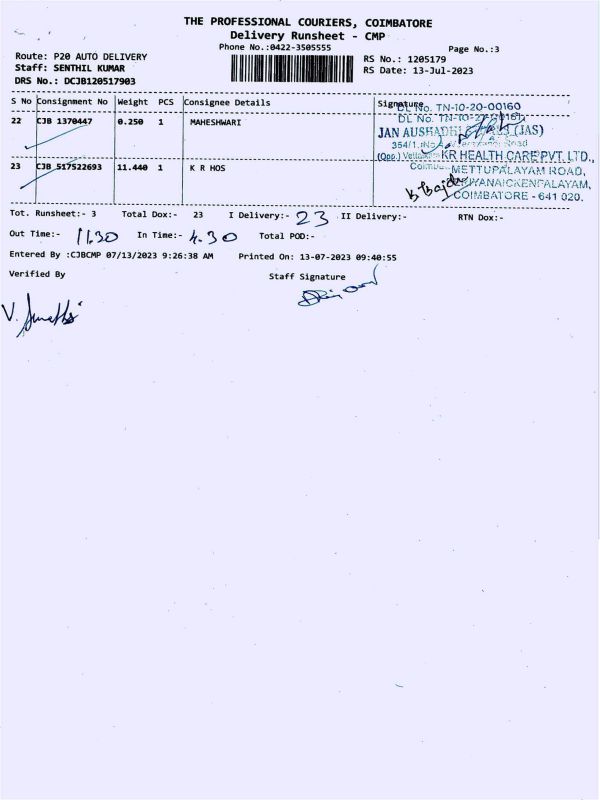 THE PROFESSIONAL COURIERS, COIMBATORE
Delivery Runsheet - CMP
Phone No.:0422-3505555
Page No.:3
Route: P20 AUTO DELIVERY
RS No.: 1205179
Staff: SENTHIL KUMAR
RS Date: 13-Jul-2023
DRS No.: DCJB120517903
S No Consignment No Weight PCS Consignee Details Signature
DL No. TN-10-20-00160
22 CJB 1370447 0.250 1 MAHESHWARI
DL No. TN-10-21-00161
JAN AUSHADHI (JAS)
354/1, Road
(Opp.) KR HEALTH CARE PVT. LTD.,
23 CJB 517522693 11.440 1 K R HOS
METTUPALAYAM ROAD,
COIMBATORE - 641 020.
Tot. Runsheet:- 3 Total Dox:- 23 I Delivery:- 23 II Delivery:- RTN Dox:-
Out Time:- 11.30 In Time:- 4.30 Total POD:-
Entered By :CJBCMP 07/13/2023 9:26:38 AM Printed On: 13-07-2023 09:40:55
Verified By Staff Signature